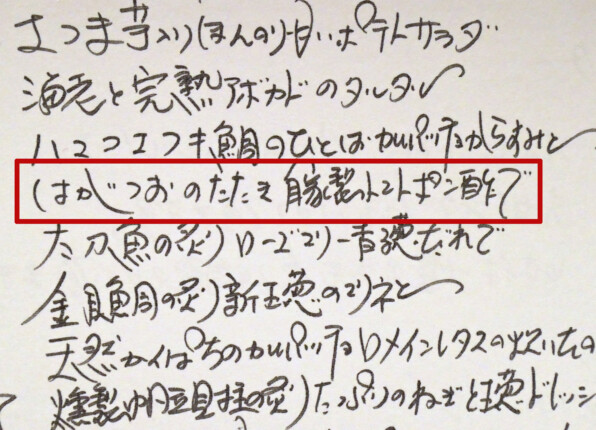 さつま芋入りほんのり甘いポテトサラダ
海老と完熟アボカドのタルタル
ハマフエフキ鯛のひとはだカルパッチョからすみと
はがつおのたたき 自家製トマトポン酢で
太刀魚の炙り ローズマリー香る葱だれで
金目鯛の炙り 新玉葱のマリネと
天然かんぱちのカルパッチョ ロメインレタスの炊いたの
燻製帆立貝柱の炙り たっぷりのねぎと玉葱ドレッシ